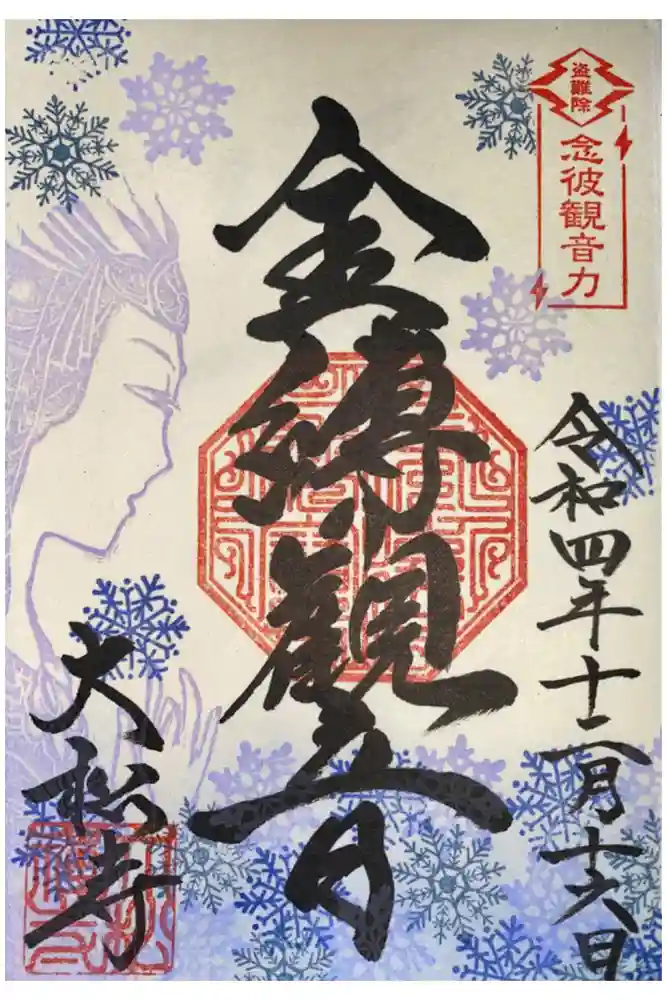 盗難除
念彼観音力
令和四年十二月十六日
金縛観音
大松寺